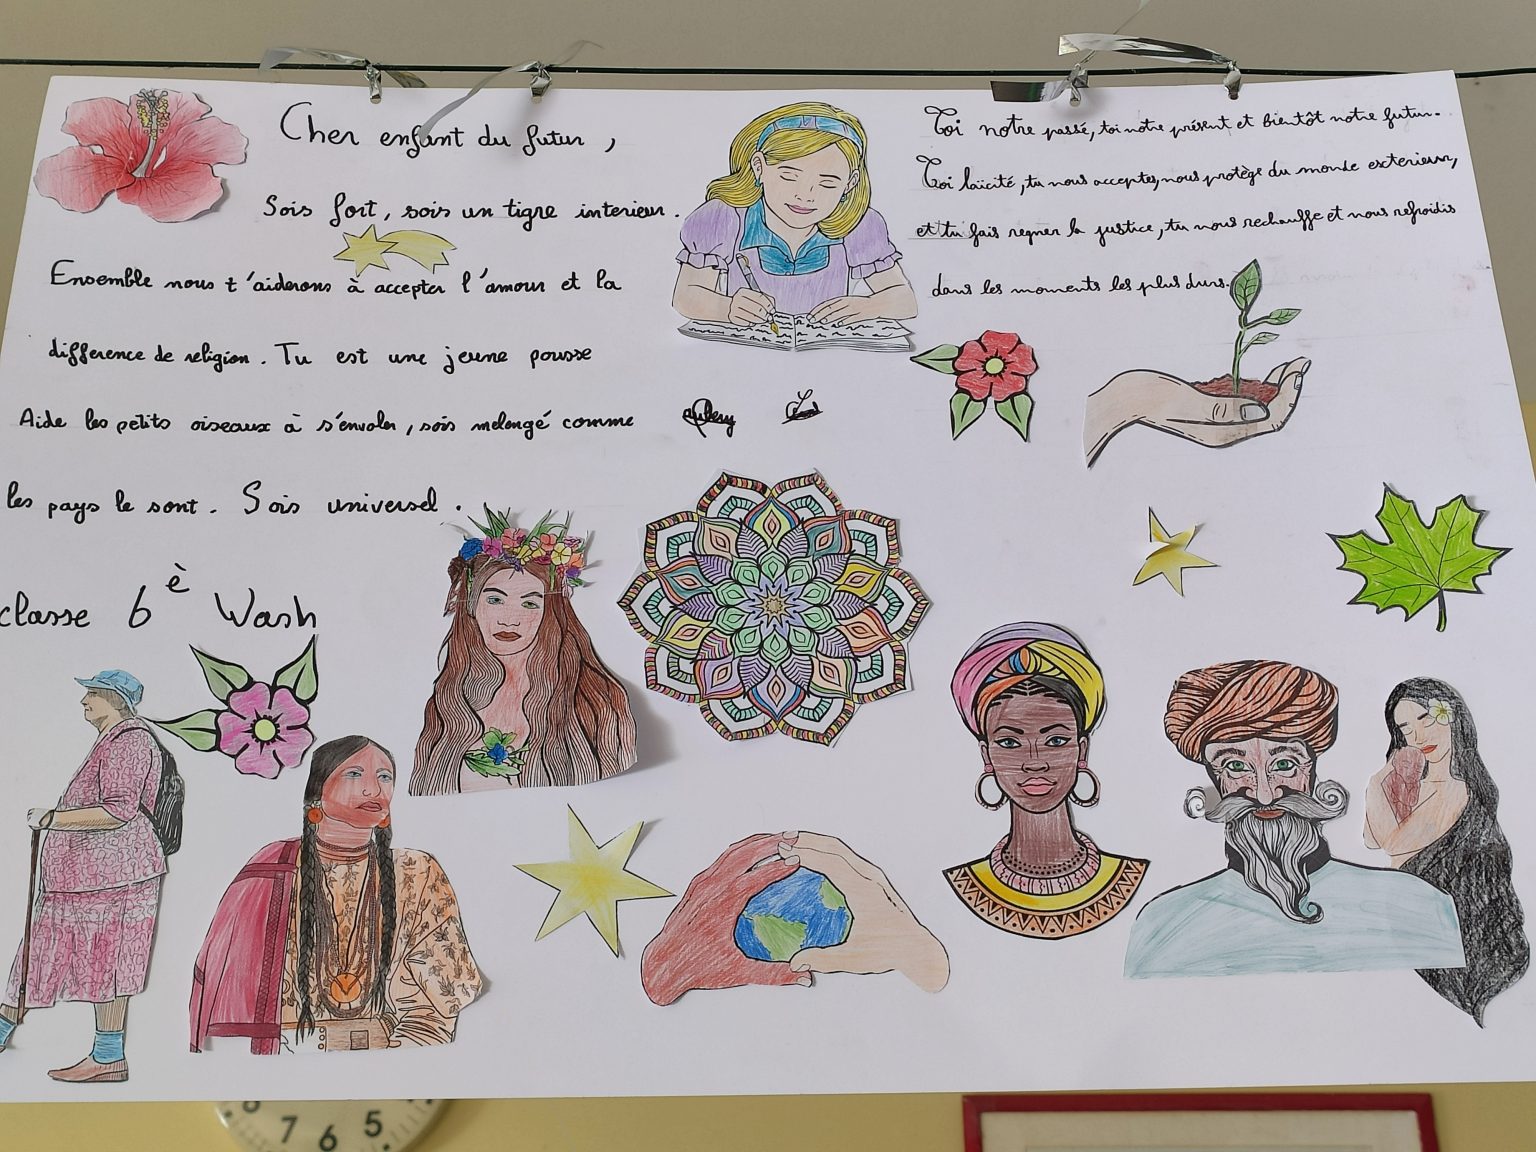 Cher enfant du futur,
Sois fort, sois un tigre interieur.
Ensemble nous t'aiderons à accepter l'amour et la
difference de religion. Tu est une jeune pousse
Aide les petits oiseaux à s'envoler, sois melengé comme
les pays le sont. Sois universel.
classe 6è Wash
Toi notre passé, toi notre présent et bientôt notre futur.
Toi laïcité, tu nous acceptes, nous protège du monde exterieur,
et tu fais regner la justice, tu nous rechauffe et nous refroidis
dans les moments les plus durs.
8 7 6 5